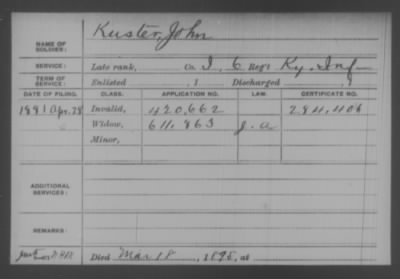 Kuster, John
NAME OF SOLDIER:
SERVICE: Late rank, Co. I, 6 Reg't Ky. Inf
TERM OF SERVICE: Enlisted , 1 Discharged , 1
DATE OF FILING. CLASS. APPLICATION NO. LAW. CERTIFICATE NO.
1881 Apr. 28 Invalid, 420,662 284,406
Widow, 611,863
Minor,
ADDITIONAL SERVICES:
REMARKS:
Died Mar 18, 1895, at